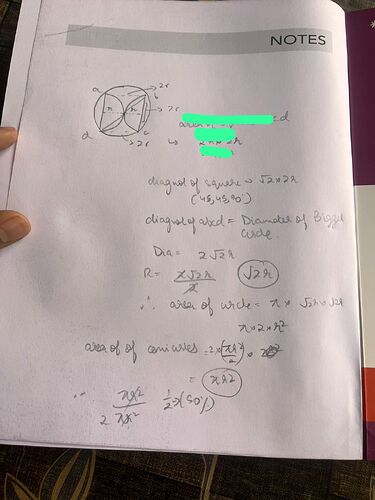 NOTES
a 2r
b 2r
r r
d c 2r
d
diagnol of square → √2 × 2r
(45, 45, 90°)
diagnol of abcd = Diameter of Bigger
circle.
Dia = 2√2r
R = 2√2r / 2 √2r
∴ area of circle = π × √2r × √2r
π × 2 × r²
area of of semicircles = 2 × (πr²/2)
= πr²
∴ πr² / 2πr² 1/2 → (50%)